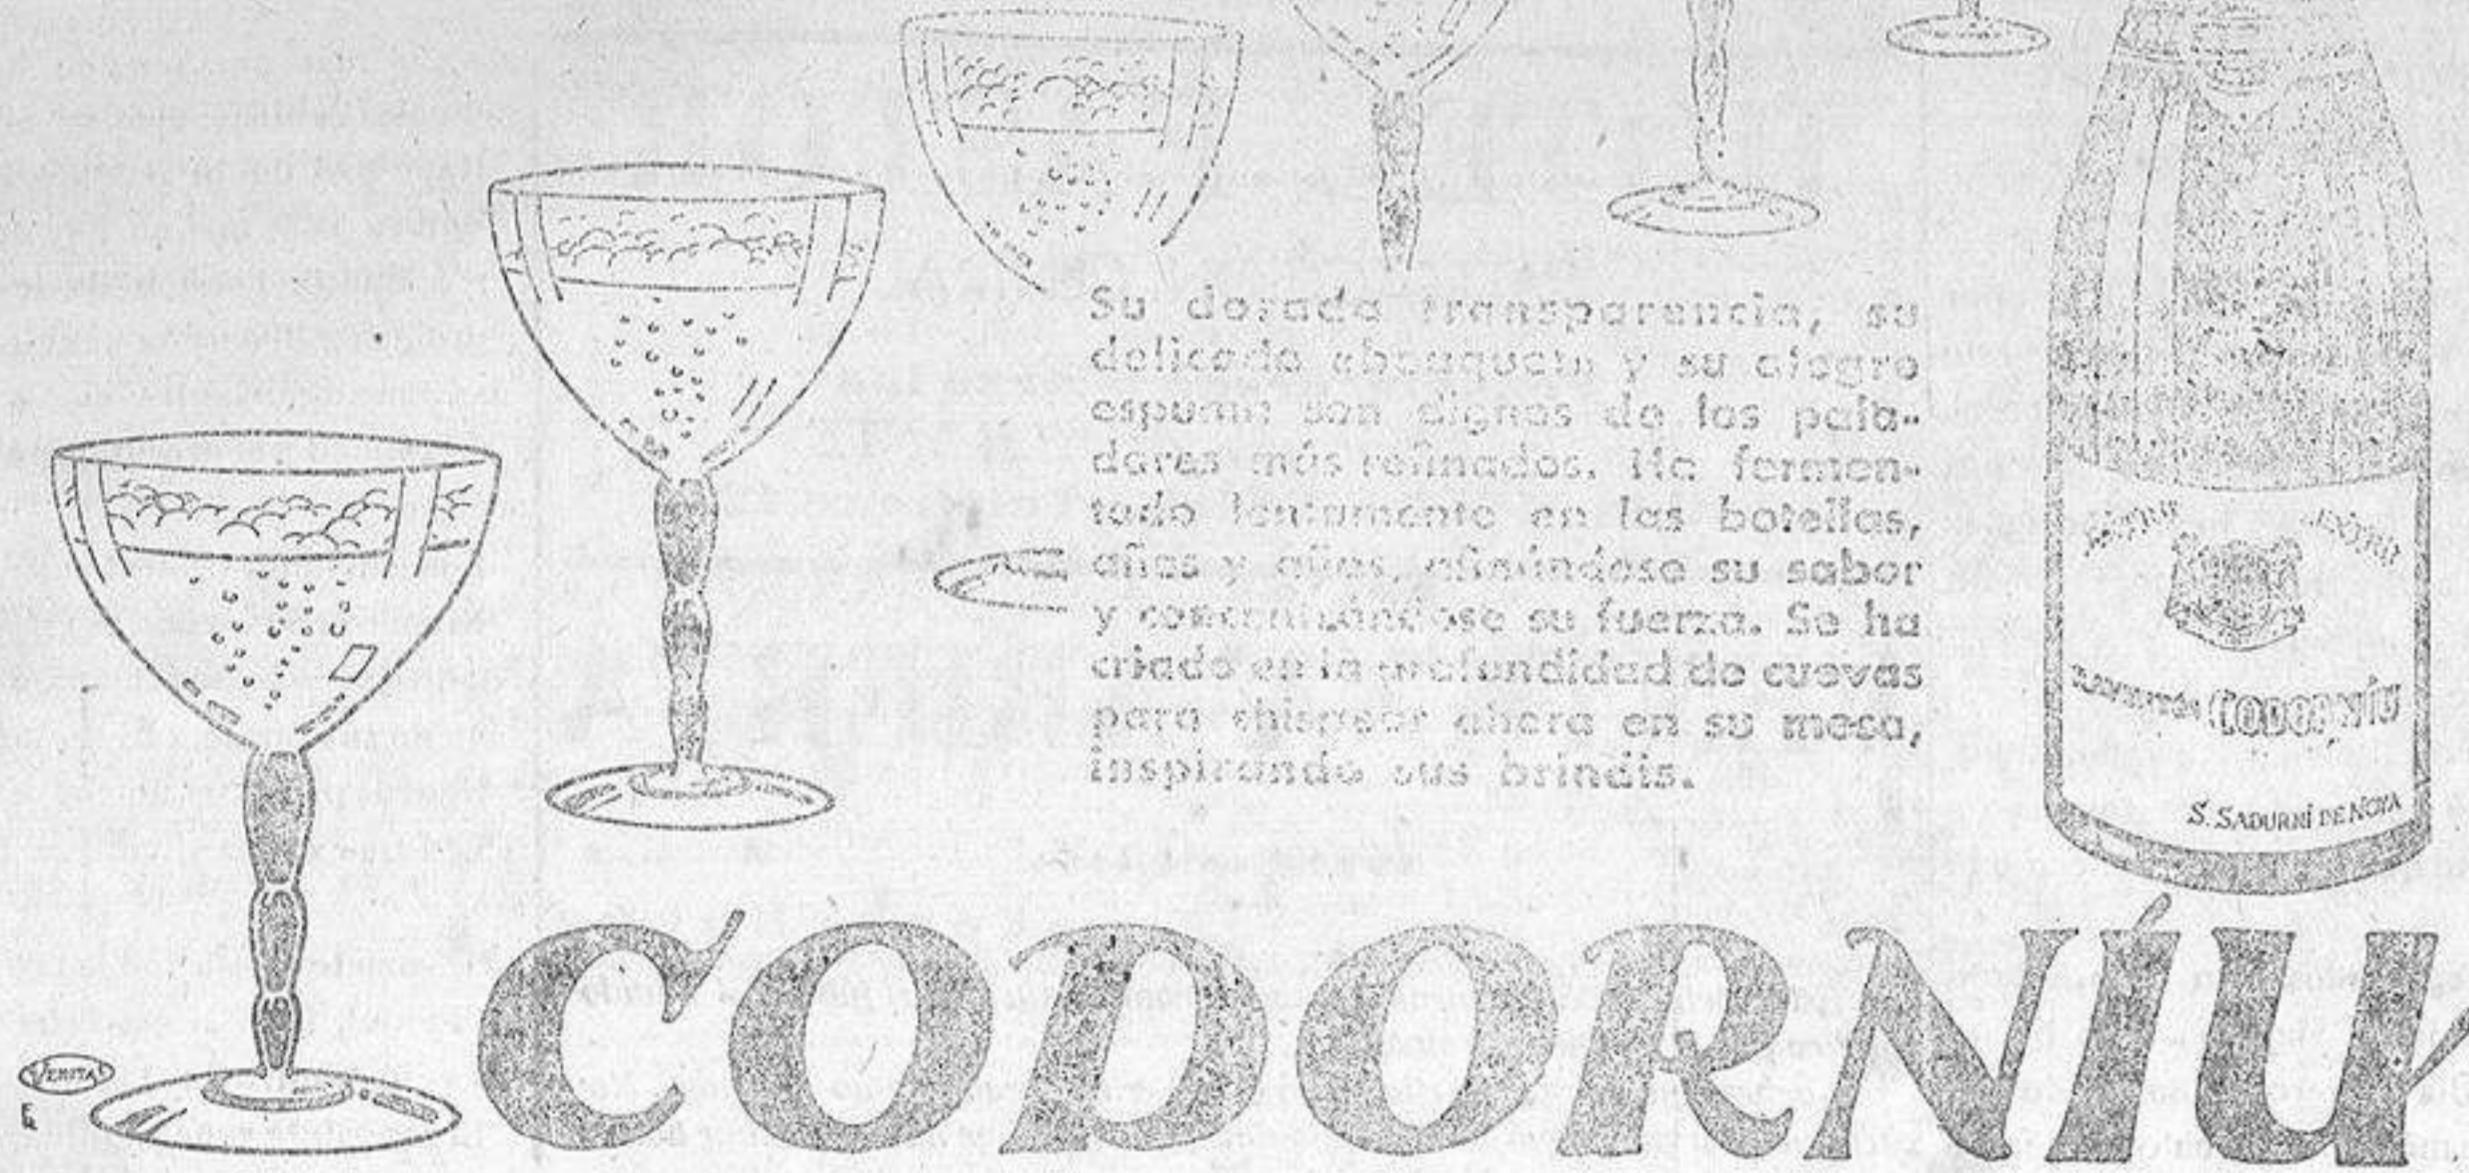 Su dorada transparencia, su
delicado «bouquet» y su alegre
espuma son dignos de los pala-
dares más refinados. Ha fermen-
tado lentamente en las botellas,
años y años, afinándose su sabor
y concentrándose su fuerza. Se ha
criado en la profundidad de cuevas
para chispear ahora en su mesa,
inspirando sus brindis.
CODORNÍU
S. SADURNÍ DE NOYA
CODORNÍU
VERITAS